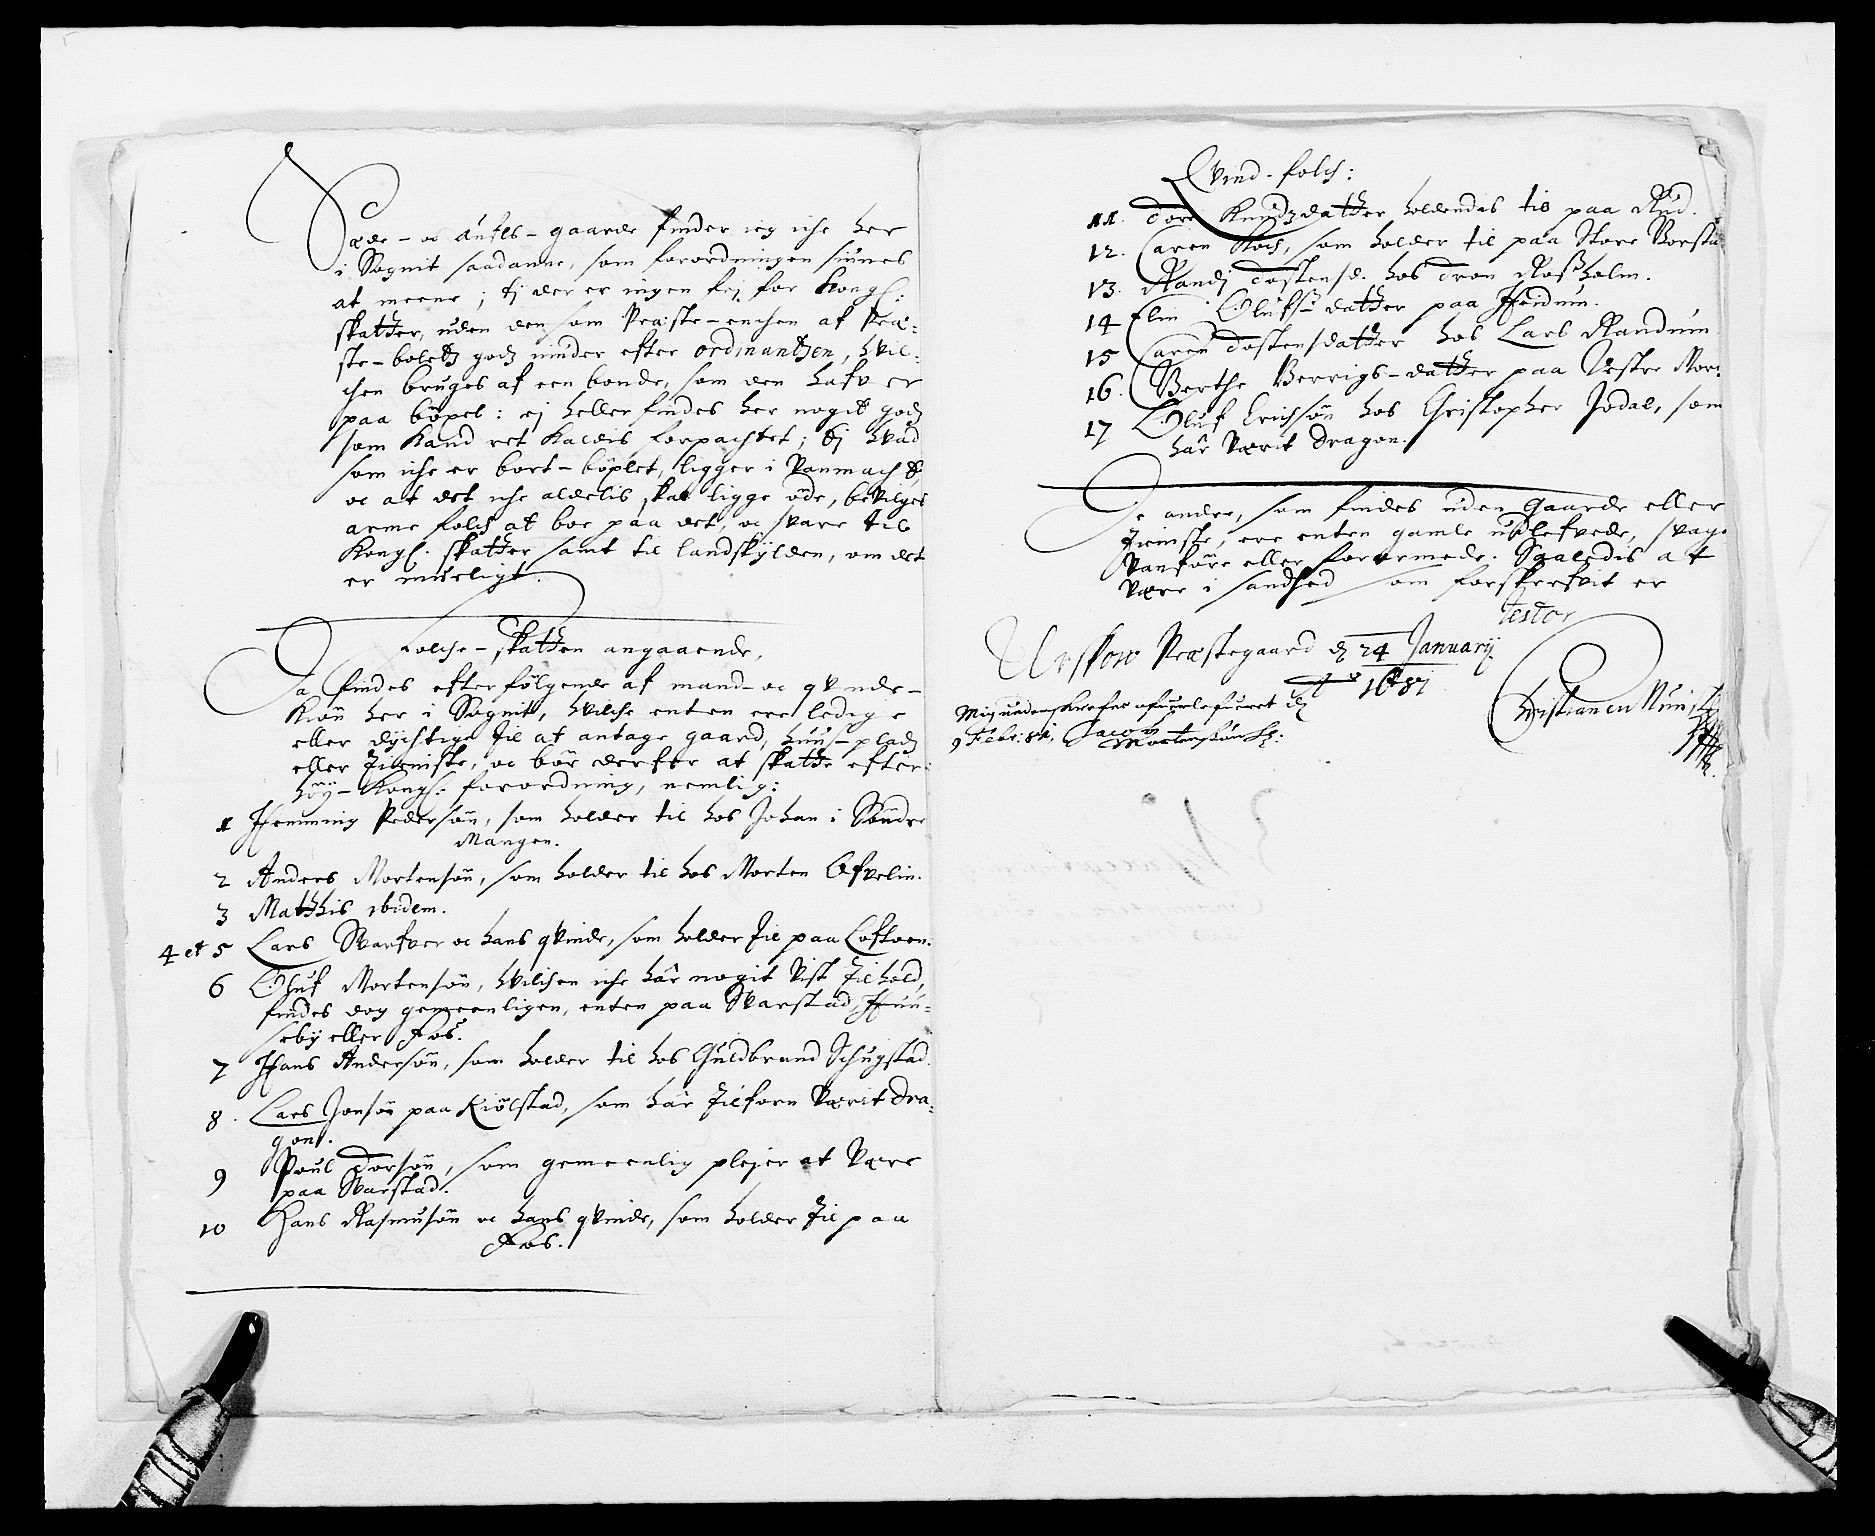 Sæde- oc aufls-gaarde finder ieg iche her
i Sognit saadanne, som forordningen siunes
at meene; tj der er ingen frj for Kongl:
skatter, uden den som Præste-enchen af Præ-
ste-boletz godz niuder efter ordinantzen, hvil-
chen bruges af een bonde, som den hafver
paa böxel: ej heller findes her nogit godz
som kand ret kaldis forpachtet; tj hvad
som iche er bort-böxlet, ligger i Vanmacht,
oc at det iche aldelis skal ligge öde, bevilges
arme folch at boe paa det, oc svare til
Kongl. skatter samt til landskylden, om det
er mueligt.
Folche-skatten angaaende,
Da findes efterfölgende af mand- oc qvinde-
kiön her i Sognit, hvilche enten ere ledige
eller dychtige til at antage gaard, huus-pladz
eller tieniste, oc bör derfor at skatte efter
höy-Kongl: forordning, nemlig:
1 Hemming Pedersön, som holder til hos Johan i Söndre
Mangen.
2 Anders Mortensön, som holder til hos Morten Ofvelin.
3 Matthis ibidem.
4 et 5 Lars Svarfver oc hans qvinde, som holder til paa Loftoen.
6 Oluf Mortensön, hvilchen iche hâr nogit vist tilhold,
findes dog gemeenligen, enten paa Svarstad, Huu-
seby eller Fos.
7 Hans Andersön, som holder til hos Guldbrand Schugstad.
8. Lars Jonsön paa Kiölstad, som hâr tilforn værit dra-
gon.
9 Poul Torsön, som gemeenlig plejer at være
paa Svarstad.
10 Hans Rasmusön oc hans qvinde, som holder til paa
Fos.
Qvind-folch:
11. Tore Knudzdatter holdendes til paa Rud.
12. Caren Koch, som holder til paa Store Borsta
13. Randj Tostensd. hos Tron Rosholm.
14 Elin Olufs-datter paa Hondun.
15 Caren Tostensdatter hos Lars Randum
16. Berthe Berrigs-datter paa Vestre Mor
17 Oluf Erichsön hos Christopher Jodal, som
hâr værit dragon.
De andre, som findes uden gaarde eller
tieniste, ere enten gamle udlefvede, svage
vanföre eller forarmede. Saaledis at
være i sandhed som forskrefvit er
testor
Urskow Præstegaard d 24 January
Ao 1687
Christianen Munch
Mig underskrefne ofuerlefueret dj
9 Febr: 87, Jacob
Mortensön